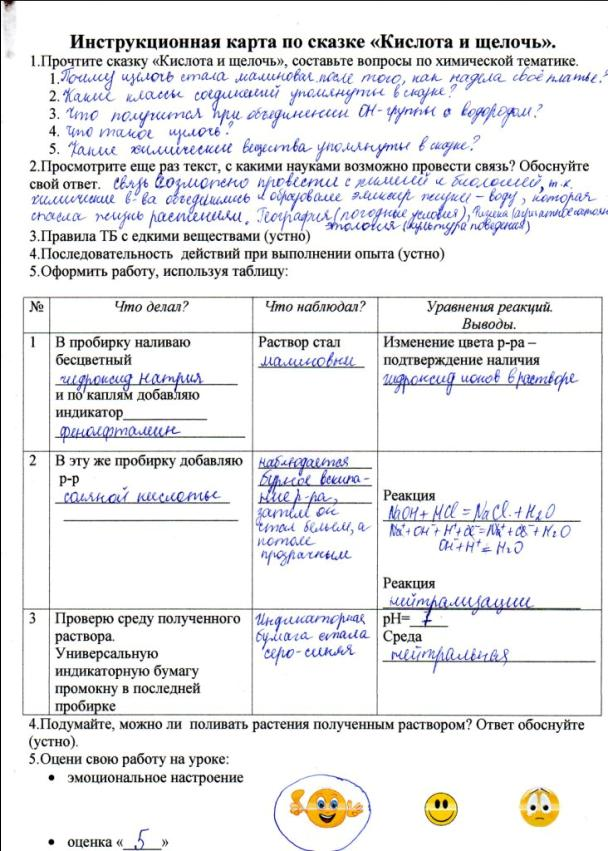 Инструкционная карта по сказке «Кислота и щелочь».
1.Прочтите сказку «Кислота и щелочь», составьте вопросы по химической тематике.
1. Почему щелочь стала малиновая после того, как надела своё платье?
2. Какие классы соединений упомянуты в сказке?
3. Что получится при объединении ОН-группы с водородом?
4. Что такое щелочь?
5. Какие химические вещества упомянуты в сказке?
2.Просмотрите еще раз текст, с какими науками возможно провести связь? Обоснуйте
свой ответ. связь возможно провести с химией и биологией, т.к.
химические в-ва объединились и образовали эликсир жизни - воду, которая
спасла жизнь растениям. География (погодные условия), Физика (агрегатное состояние
этология (культура поведения)
3.Правила ТБ с едкими веществами (устно)
4.Последовательность действий при выполнении опыта (устно)
5.Оформить работу, используя таблицу:
№ Что делал? Что наблюдал? Уравнения реакций.
Выводы.
1 В пробирку наливаю
бесцветный
гидроксид натрия
и по каплям добавляю
индикатор
фенолфталеин
Раствор стал
малиновым
Изменение цвета р-ра –
подтверждение наличия
гидроксид ионов в растворе
2 В эту же пробирку добавляю
р-р
соляной кислоты
наблюдается
бурное вскипа-
ние р-ра,
затем он
стал белым, а
потом
прозрачным
Реакция
NaOH + HCl = NaCl + H2O
Na⁺ + OH⁻ + H⁺ + Cl⁻ = Na⁺ + Cl⁻ + H2O
OH⁻ + H⁺ = H2O
Реакция
нейтрализации
3 Проверю среду полученного
раствора.
Универсальную
индикаторную бумагу
промокну в последней
пробирке
Индикаторная
бумага стала
серо-синяя
pH= 7
Среда
нейтральная
4.Подумайте, можно ли поливать растения полученным раствором? Ответ обоснуйте
(устно).
5.Оцени свою работу на уроке:
• эмоциональное настроение
• оценка « 5 »